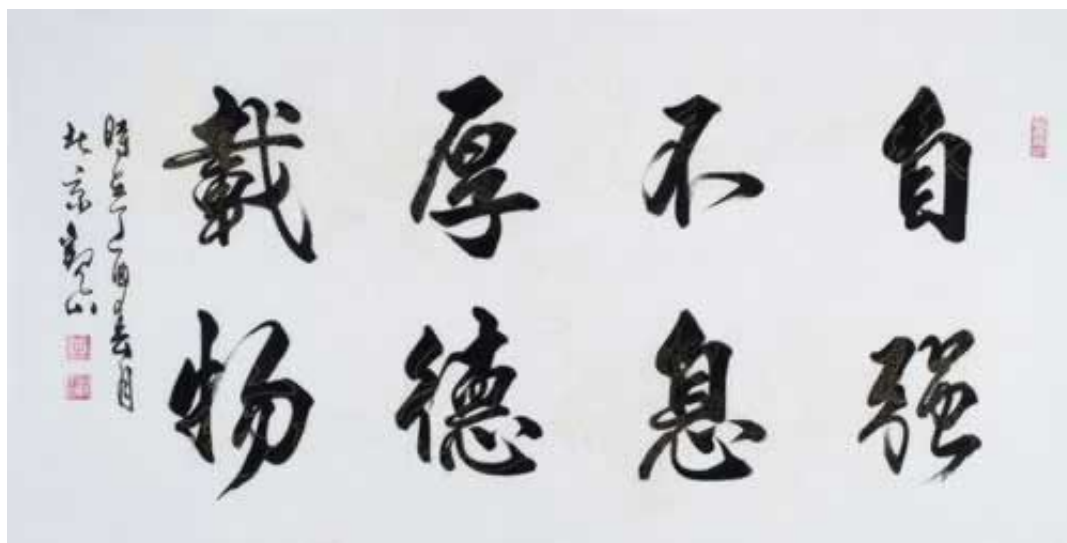 自强
不息
厚德
載物
時在丁酉春月
北京